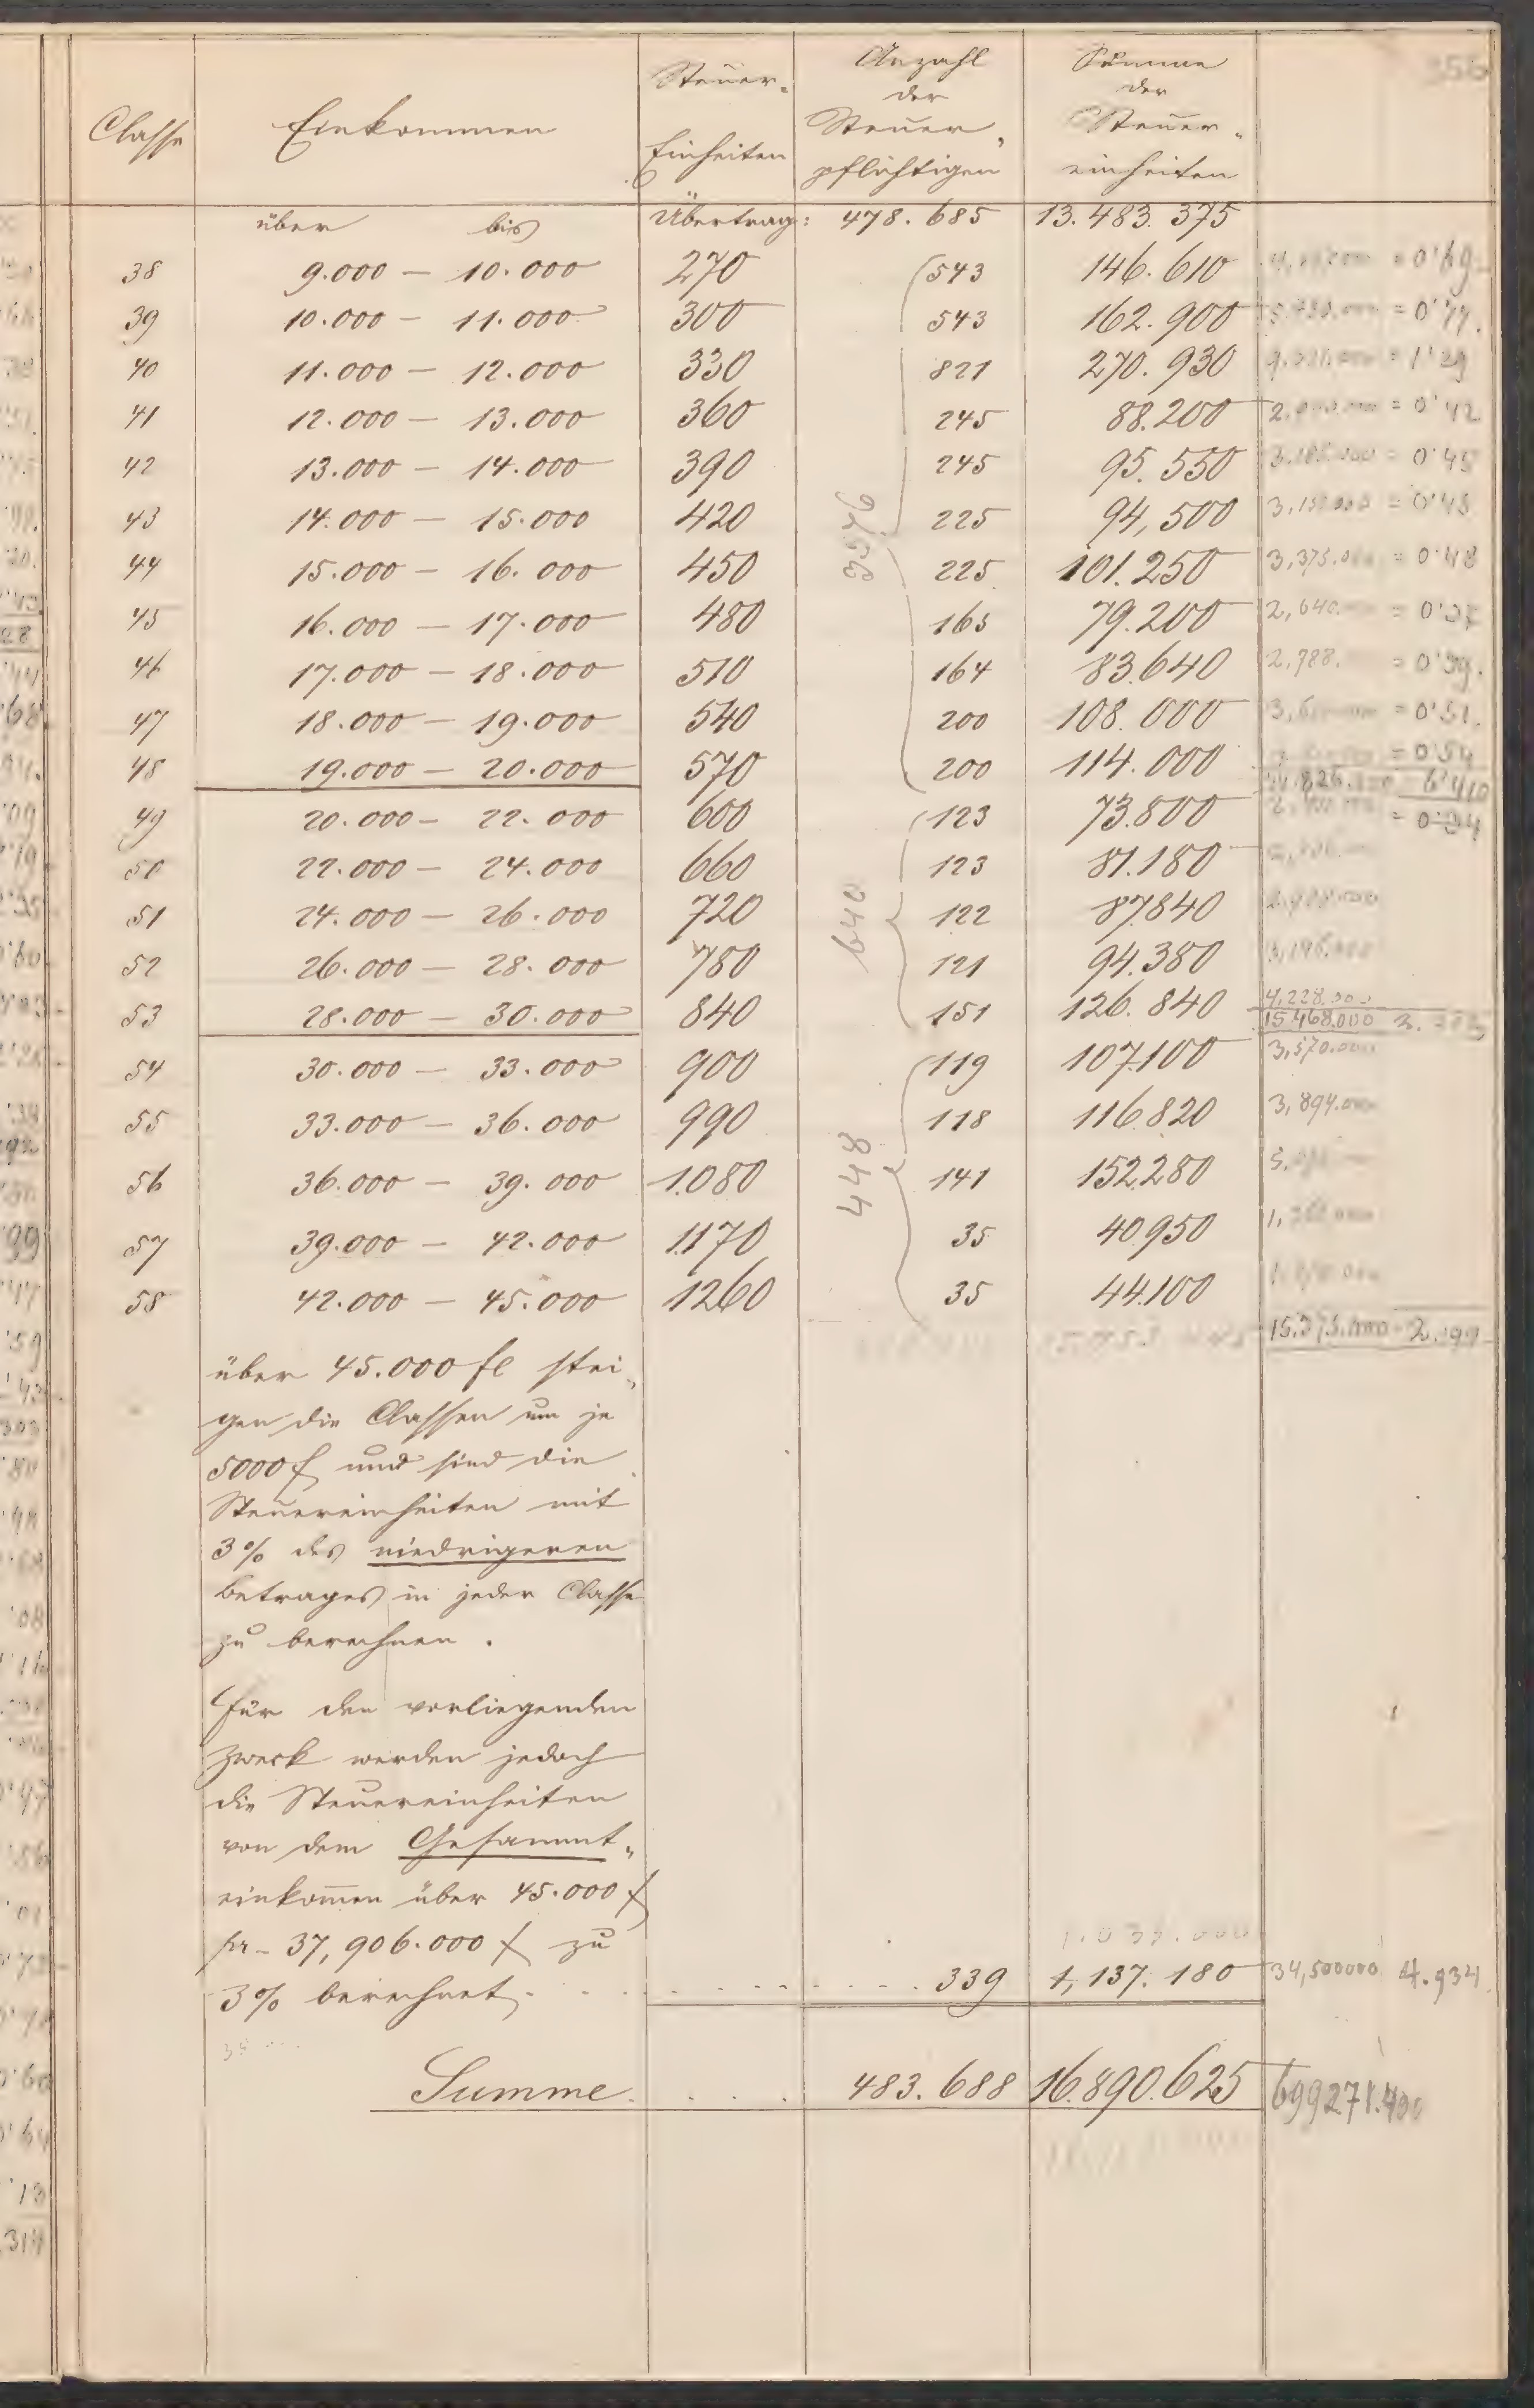 356
Classe Einkommen Steuer- Einheiten Anzahl der Steuer- pflichtigen Summe der Steuer- einheiten
über bis Übertrag: 478.685 13.483.375
38 9.000 — 10.000 270 543 146.610 = 0'69
39 10.000 — 11.000 300 543 162.900 = 0'77
40 11.000 — 12.000 330 821 270.930 = 1'29
41 12.000 — 13.000 360 245 88.200 = 0'42
42 13.000 — 14.000 390 245 95.550 = 0'45
43 14.000 — 15.000 420 225 94,500 3,150.000 = 0'45
3576
44 15.000 — 16.000 450 225 101.250 3,375.000 = 0'48
45 16.000 — 17.000 480 165 79.200 2,640. = 0'37
46 17.000 — 18.000 510 164 83.640 2,788. = 0'39.
47 18.000 — 19.000 540 200 108.000 = 0'51.
48 19.000 — 20.000 570 200 114.000 = 0'54
49 20.000 — 22.000 600 123 73.800 = 0.34
50 22.000 — 24.000 660 123 81.180
51 24.000 — 26.000 720 122 87840
640
52 26.000 — 28.000 780 121 94.380
53 28.000 — 30.000 840 151 126.840 4,228.000
15.468.000
54 30.000 — 33.000 900 119 107.100 3,570.000
55 33.000 — 36.000 990 118 116.820 3,894.000
448
56 36.000 — 39.000 1.080 141 152.280
57 39.000 — 42.000 1.170 35 40.950
58 42.000 — 45.000 1260 35 44.100
über 45.000 fl stei-
gen die Classen um je
5000 f und sind die
Steuereinheiten mit
3% des niedrigeren
Betrages in jeder Classe
zu berechnen.
Für den vorliegenden
Zweck werden jedoch
die Steuereinheiten
von dem Gesammt-
einkom̅en über 45.000 f
pr 37,906.000 f zu
3% berechnet. 339 1,137.180 34,500000 4.934
Summe 483.688 16.890.625